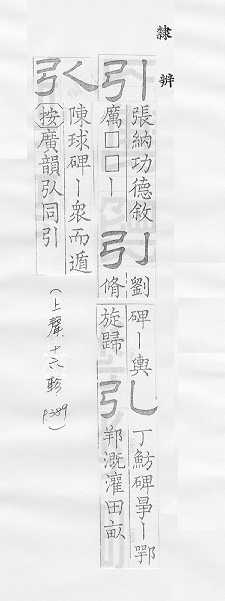 隸辨
引
張納功德敘
厲□□丨
引
劉脩
碑丨輿
旋歸
引
丁魴碑㽙丨鄂
鄁溉灌田畝
弘
陳球碑丨衆而遁
按廣韻弘同引
(上聲十六軫
P389)